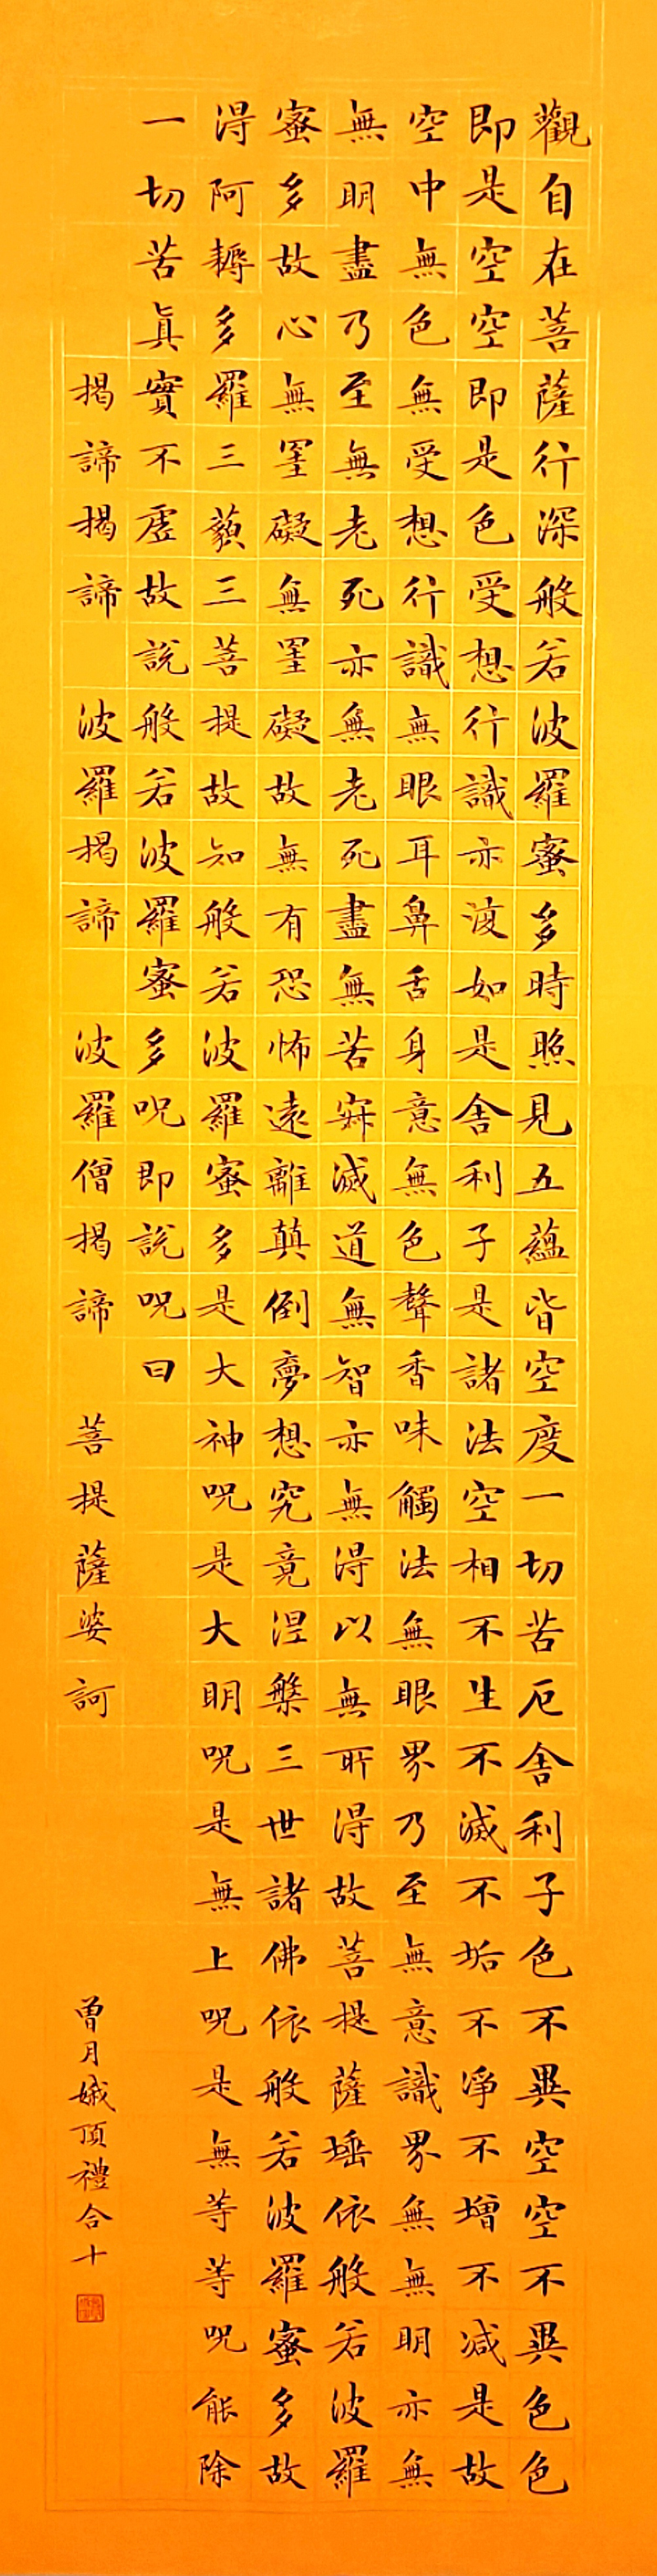 觀自在菩薩行深般若波羅蜜多時照見五蘊皆空度一切苦厄舍利子色不異空空不異色色
即是空空即是色受想行識亦復如是舍利子是諸法空相不生不滅不垢不淨不增不減是故
空中無色無受想行識無眼耳鼻舌身意無色聲香味觸法無眼界乃至無意識界無無明亦無
無明盡乃至無老死亦無老死盡無苦寂滅道無智亦無得以無所得故菩提薩埵依般若波羅
蜜多故心無罣礙無罣礙故無有恐怖遠離顛倒夢想究竟涅槃三世諸佛依般若波羅蜜多故
得阿耨多羅三藐三菩提故知般若波羅蜜多是大神呪是大明呪是無上呪是無等等呪能除
一切苦真實不虛故說般若波羅蜜多呪即說呪曰
揭諦揭諦 波羅揭諦 波羅僧揭諦 菩提薩婆訶
曾月娥頂禮合十